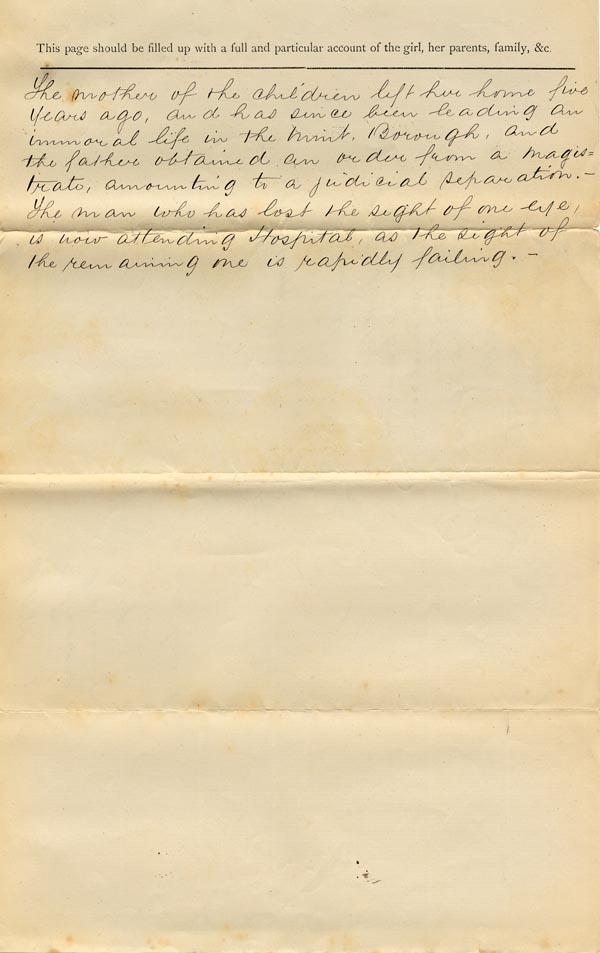 This page should be filled up with a full and particular account of the girl, her parents, family, &c.
The mother of the children left her home five
years ago, and has since been leading an
immoral life in the Mint, Borough, and
the father obtained an order from a magis=
trate, amounting to a judicial separation.—
The man who has lost the sight of one eye,
is now attending Hospital, as the sight of
the remaining one is rapidly failing.—